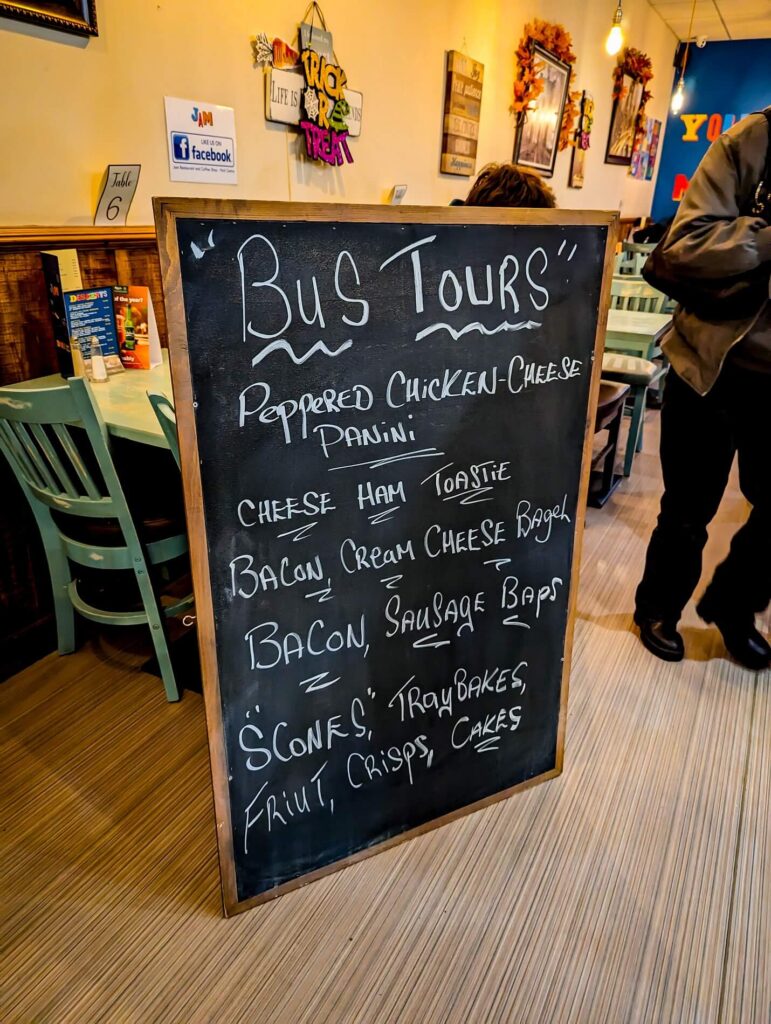 JAM
LIKE US ON
facebook
TRICK
OR
TREAT
LIFE IS
Table
6
DESSERTS
of the year?
YOU
"BUS TOURS"
PEPPERED CHICKEN-CHEESE
PANINI
CHEESE HAM TOASTIE
BACON, CREAM CHEESE BAGEL
BACON, SAUSAGE BAPS
"SCONES", TRAYBAKES,
FRIUT, CRISPS, CAKES